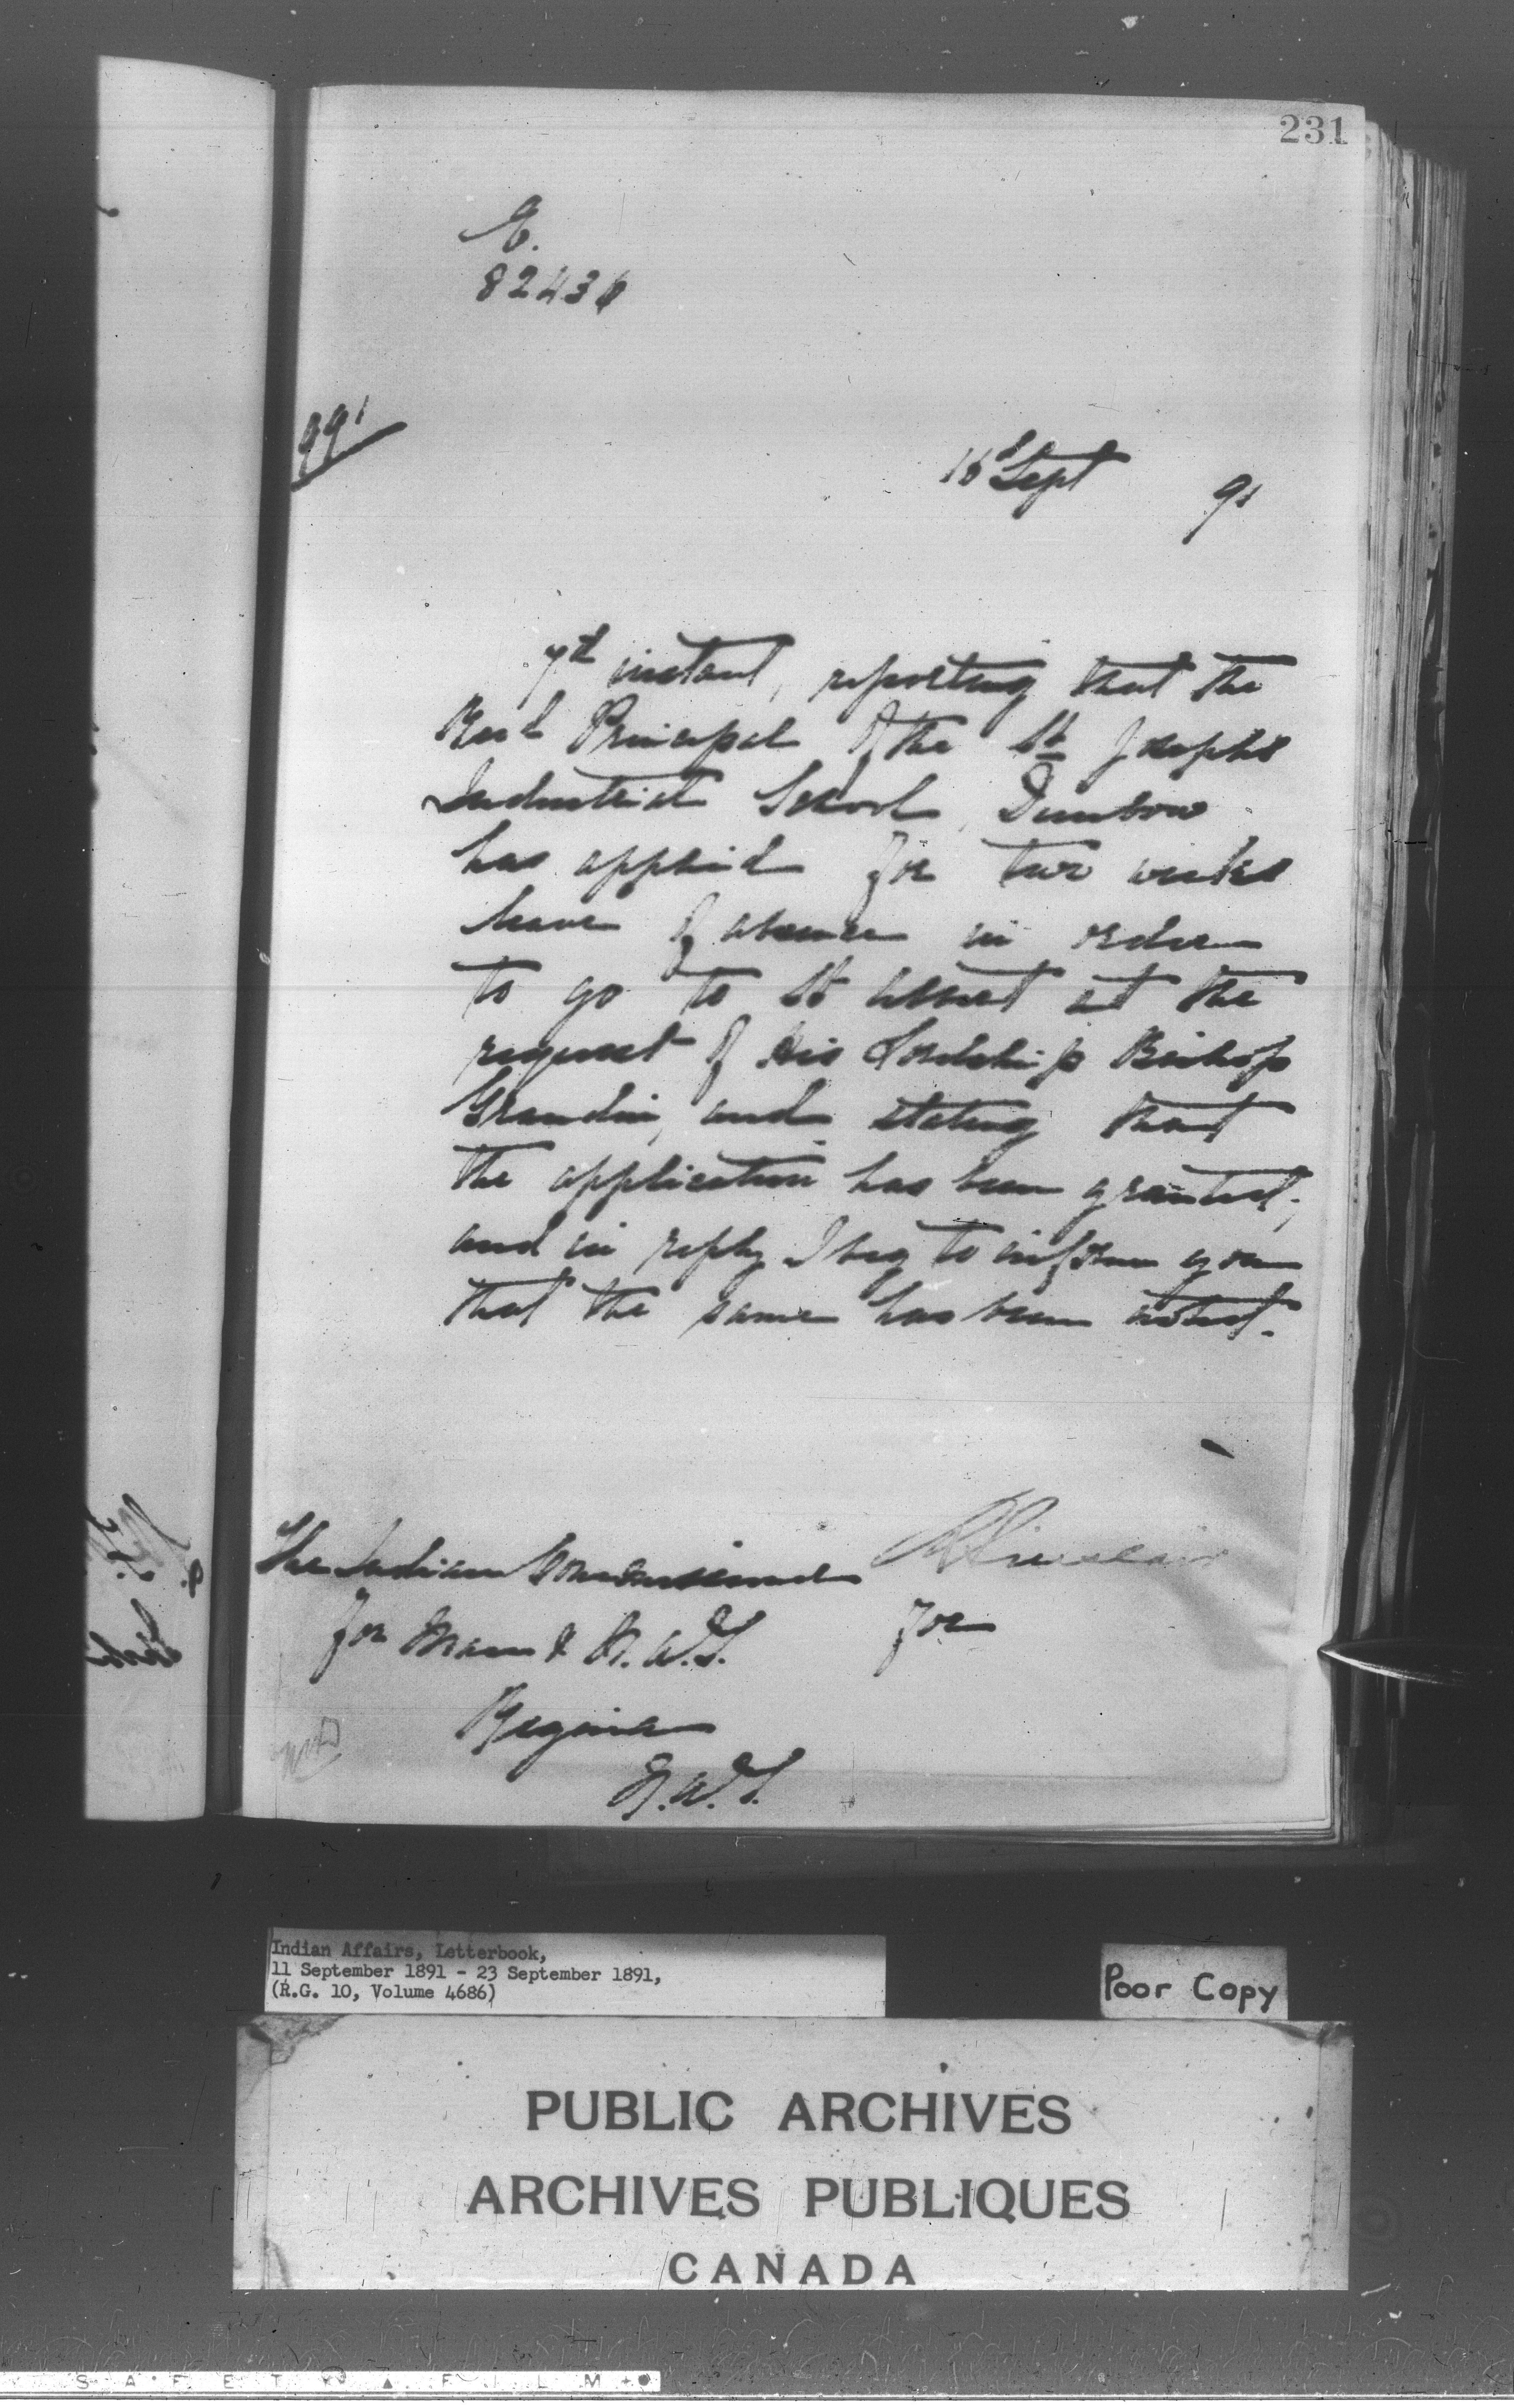 231
E.
82436
991
16 Sept 91
7th instant, reporting that the
Revd Principal of the St Josephs
Industrial School, Dunbow
has applied for two weeks
leave of absence in order
to go to St Albert at the
request of His Lordship Bishop
Grandin, and stating that
the application has been granted;
and in reply I beg to inform you
that the same has been noted.
The Indian Commissioner
R Sinclair
for Man & N.W.T.
for
Regina
N.W.T.
Indian Affairs, Letterbook,
11 September 1891 - 23 September 1891,
(R.G. 10, Volume 4686)
Poor Copy
PUBLIC ARCHIVES
ARCHIVES PUBLIQUES
CANADA
S A F E T Y F I L M